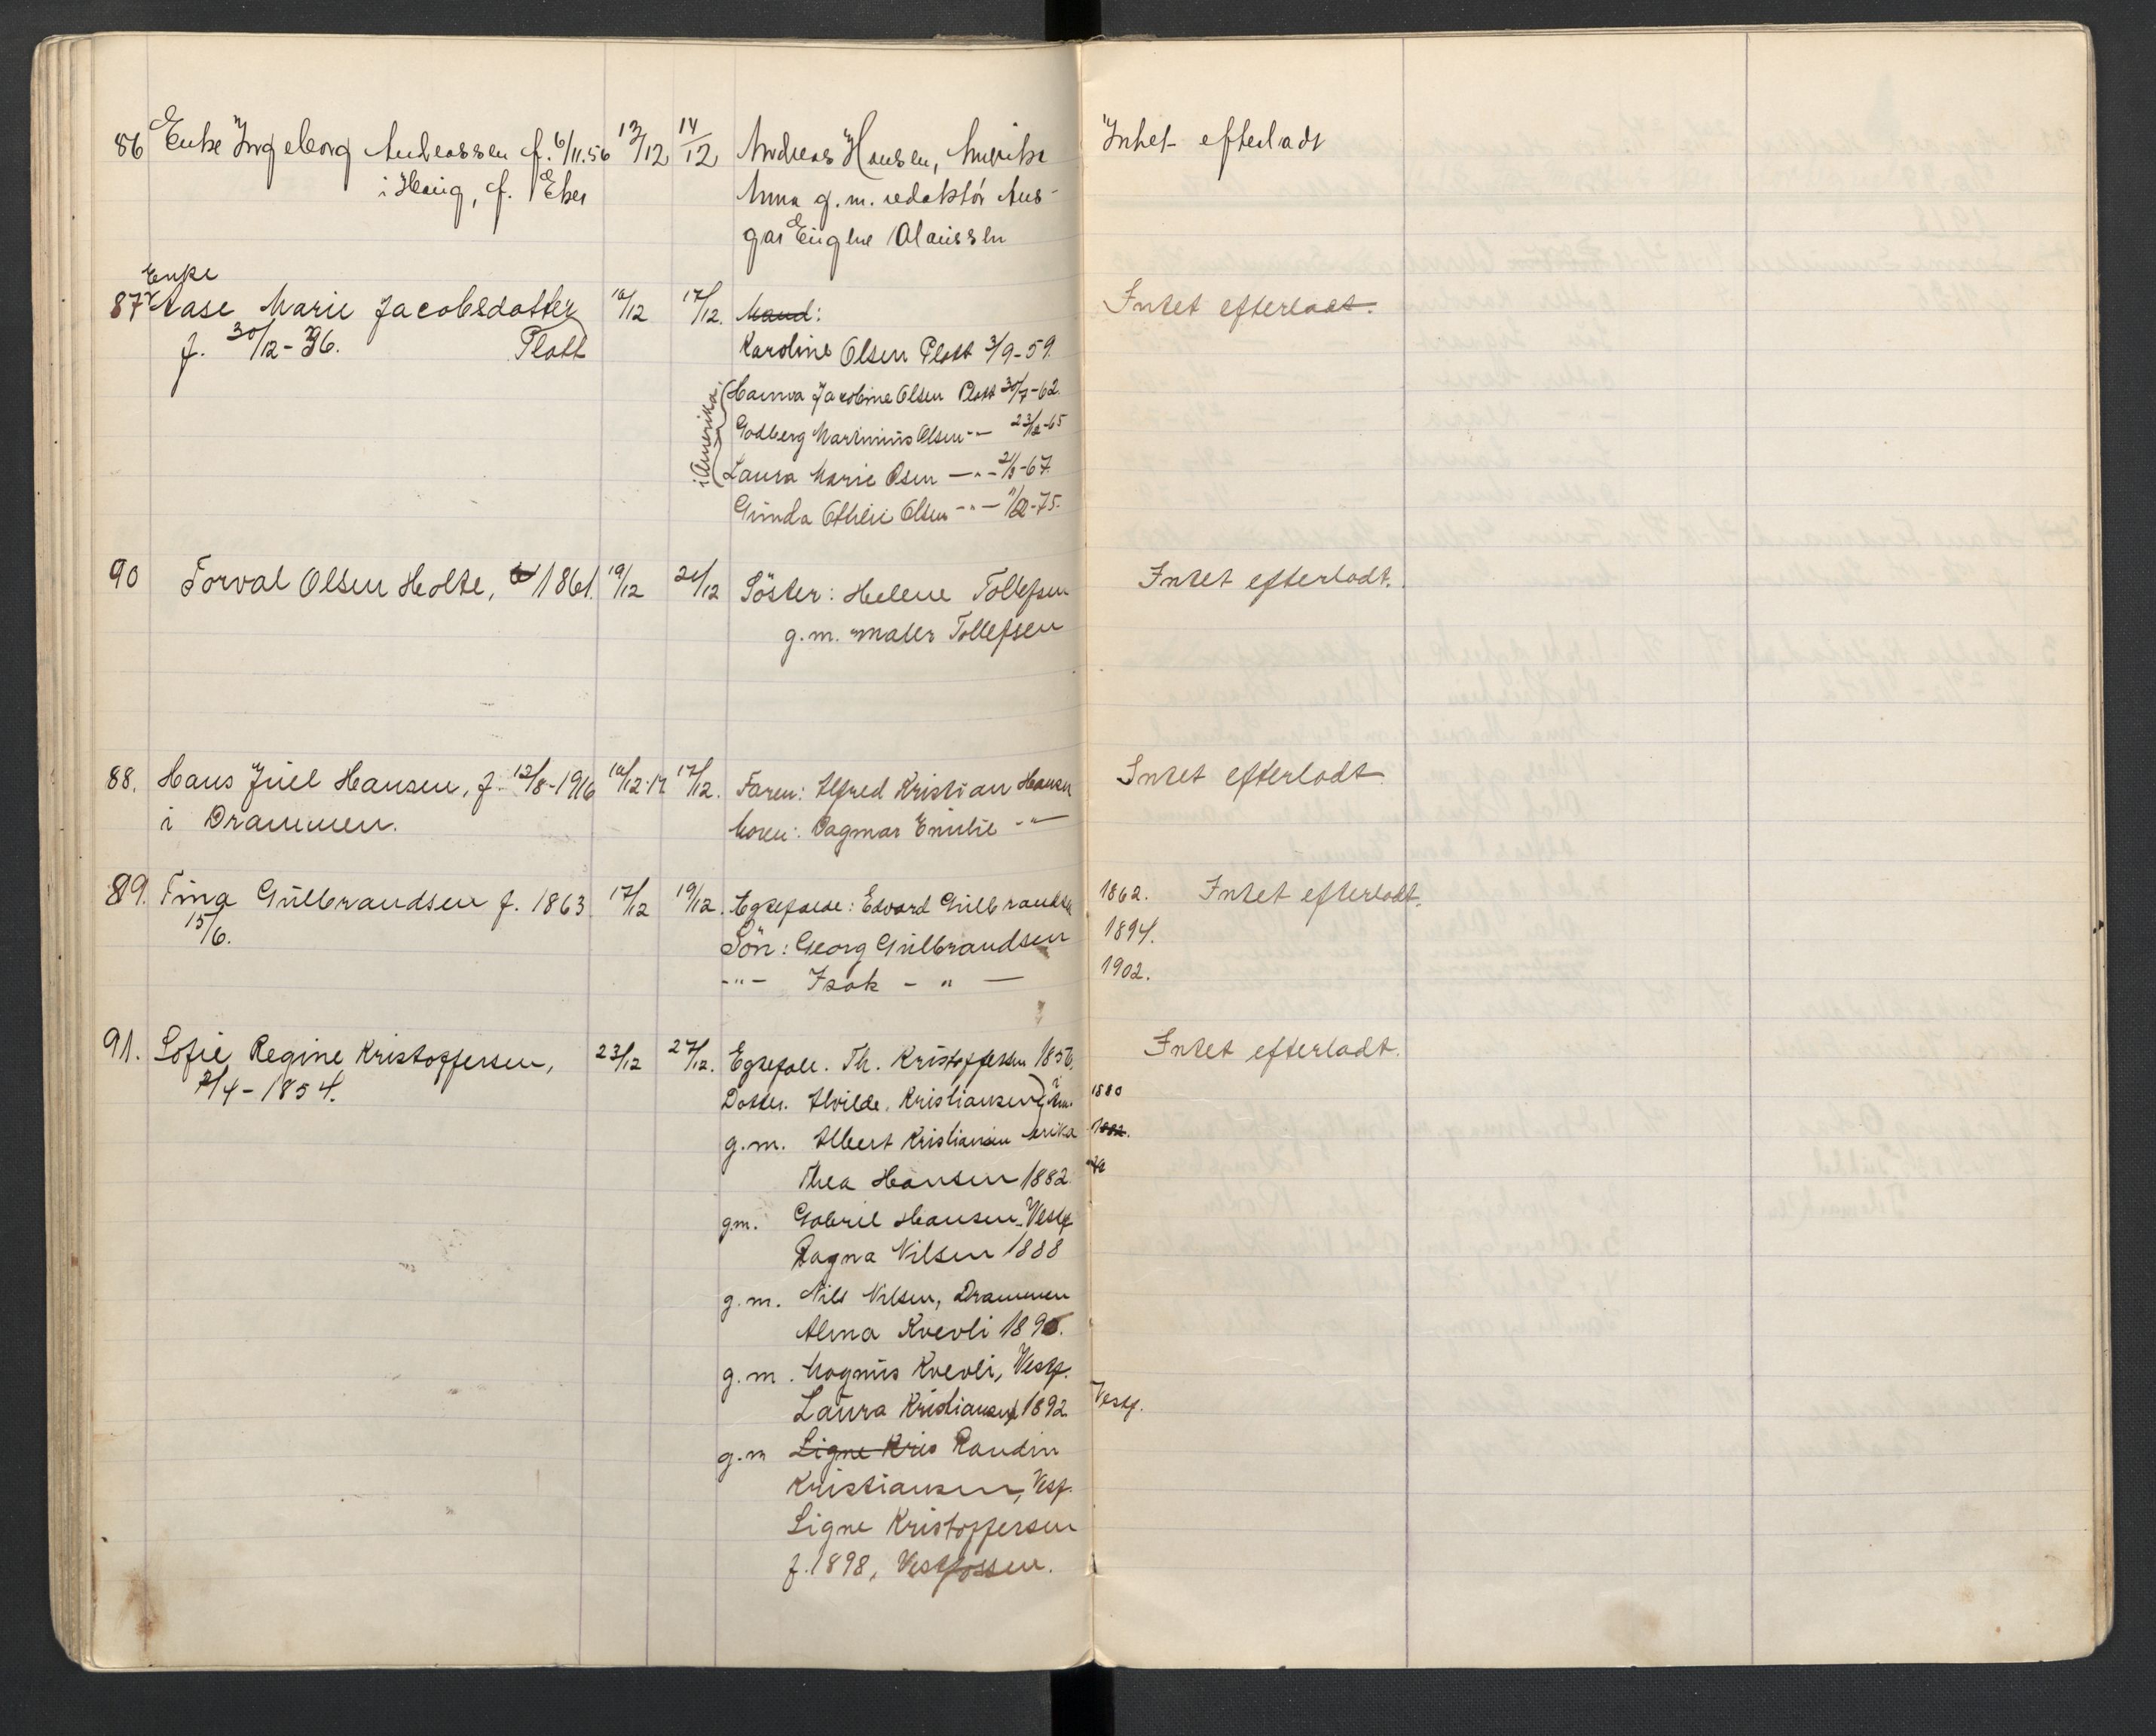 86 Enke Ingeborg Andreassen f. 6/11.56 13/12 14/12 Andreas Hansen, Amerika Intet efterladt
i Haug, f. Eker Anna g.m. redaktör Ans-
gar Eugene Olaussen
Enke
87 Aase Marie Jacobsdatter 16/12 17/12. Mand: Intet efterladt.
f. 30/12-36. Plott Karoline Olsen Plott 3/9-59.
i Amerika
Hanna Jacobine Olsen Plott 30/7-62.
Godberg Martinius Olsen -"- 23/12-65
Laura Marie Osen -"- 2/3-67.
Gunda Othlie Olsen -"- 11/12-75.
90 Torval Olsen Holte, 1861. 19/12 21/12 Söster: Helene Tollefsen Intet efterladt.
g.m. maler Tollefsen
88. Hans Juel Hansen, f. 12/8-1916 16/12-17 17/12. Faren: Alfred Kristian Hansen Intet efterladt
i Drammen. Moren: Dagmar Emilie -"-
89. Tina Gulbrandsen f. 1863. 17/12 19/12. Egtefælle: Edvard Gulbrandsen 1862. Intet efterladt.
15/6. Sön: Georg Gulbrandsen 1894.
-"- Isak -"- 1902.
91. Sofie Regine Kristoffersen, 23/12 27/12. Egtefæll. Th. Kristoffersen 1856. Intet efterladt.
2/4-1854. Datter. Alvilde. Kristiansen i Am- 1880
g.m. Albert Kristiansen erika 1882.
Thea Hansen 1882
g.m. Gabriel Hansen, Vestf.
Ragna Nilsen 1888
g.m. Nils Nilsen, Drammen
Alma Kvevli 1890.
g.m. Magnus Kvevli, Vestf.
Laura Kristiansen 1892 Vestf.
g.m Signe Kris Randin
Kristiansen, Vesf.
Signe Kristoffersen
f. 1898, Vestfossen.